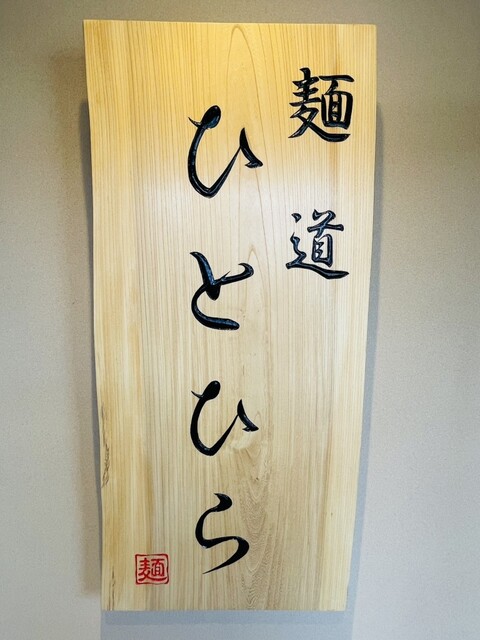 麺道
ひとひら
麺